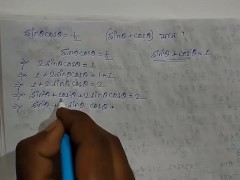 sinθ cosθ = ½ (sinθ + cosθ)
sinθ cosθ = ½ sin²θ + cos²θ = 1
⇒ 2 sinθ cosθ = 1
⇒ 1 + 2 sinθ cosθ = 1+1
⇒ 1 + 2 sinθ cosθ = 2
⇒ sin²θ + cos²θ + 2 sinθ cosθ = 2
⇒ sin²θ + sinθ cosθ +